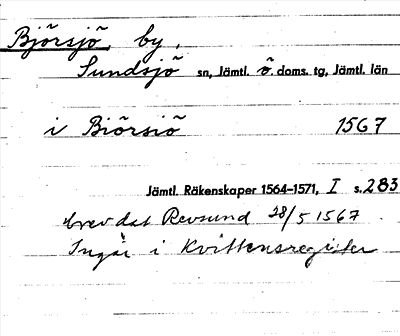 Björsjö, by,
Sundsjö sn, Jämtl. ö. doms. tg, Jämtl. län
i Biörsiö 1567
Jämtl. Räkenskaper 1564–1571, I s. 283
brev dat Revsund 28/5 1567.
Ingår i Kvittensregister